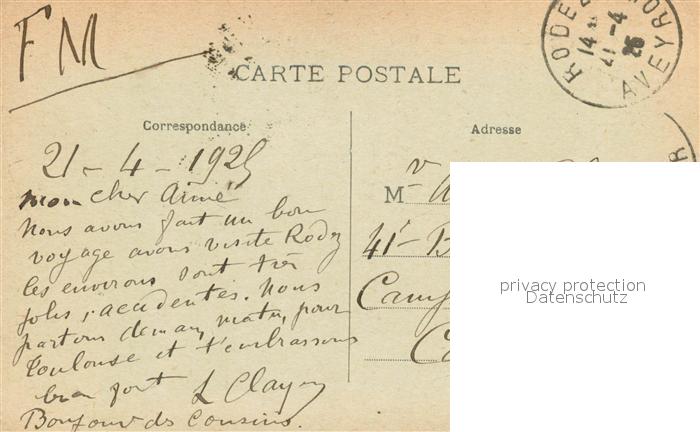 FM
CARTE POSTALE
RODEZ
14
21-4
25
AVEYRON
Correspondance
Adresse
21-4-1925
mon cher Aimé
Nous avons fait un bon
voyage avons visité Rodez
les environs sont très
jolis, accidentés. Nous
partons demain matin pour
Toulouse et t'embrassons
bien fort L Clayer
Bonjour ds Cousins.
M
41
Camp
privacy protection
Datenschutz